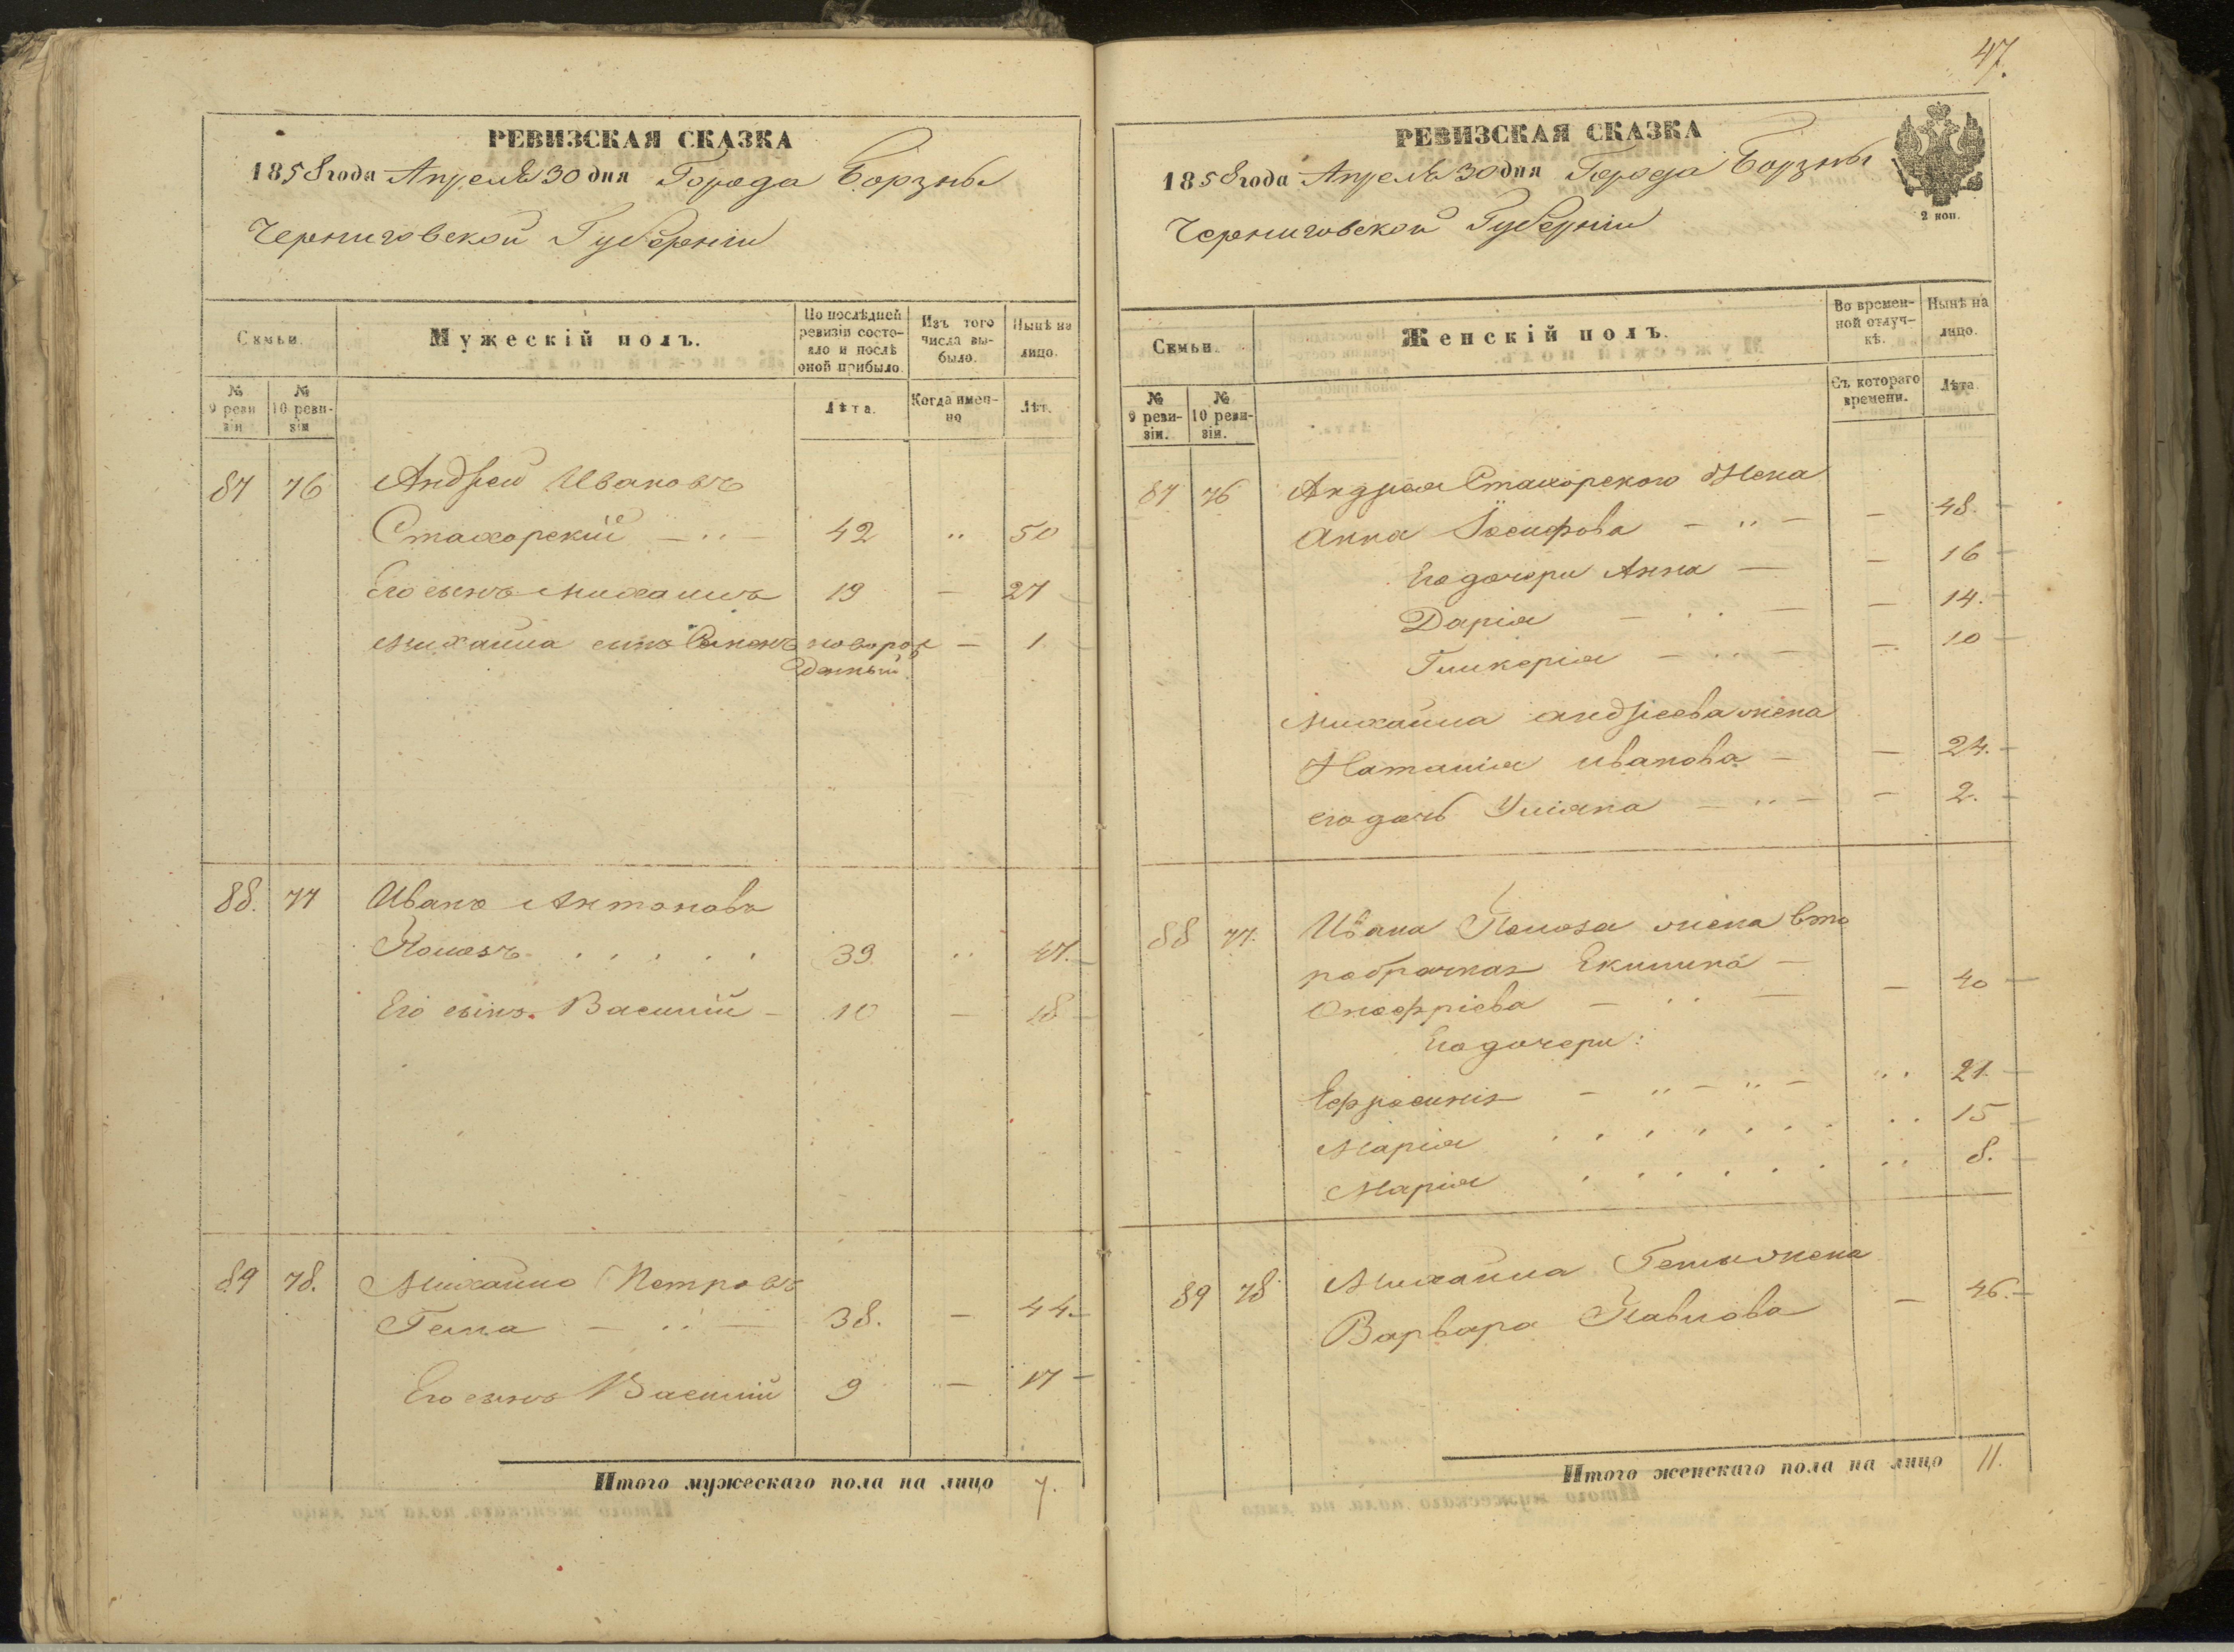 РЕВИЗСКАЯ СКАЗКА
1858 года Апреля 30 дня Города Борзны
Черниговской Губерніи
Семьи.
Мужескій полъ.
По послѣдней ревизіи состояло и послѣ оной прибыло.
Изъ того числа выбыло.
Нынѣ на лицо.
№ 9 ревизіи
№ 10 ревизіи
Лѣта.
Когда именно
Лѣт.
87 76 Андрей Ивановъ
Стахорскій — „ — 42 „ 50
Его сынъ Михаилъ 19 — 27
Михаила сынъ новорож — 1
денный.
88. 77 Иванъ Антоновъ
39 „ 47.
Его сынъ Василій — 10 — 18
89 78. Михайло Петровъ
Гема — „ — 38. — 44
Его сынъ Василій 9 — 17
Итого мужескаго пола на лицо 7.
47.
РЕВИЗСКАЯ СКАЗКА
1858 года Апреля 30 дня Города Борзны
Черниговской Губерніи
2 коп.
Семьи.
Женскій полъ.
Во временной отлучкѣ.
Нынѣ на лицо.
№ 9 ревизіи.
№ 10 ревизіи.
Съ котораго времени.
Лѣта.
87 76 Андрея Стахорского Жена
Анна Іосифова — „ — — 48.
Его дочери Анна — — 16
Дарія — „ — — 14.
Гликерія — „ — — 10
Михайла Андреева жена
Наталія Иванова — — 24.
его дочь Уліяна — „ — — 2.
88 77. Ивана жена вто
робрачная Екилина —
Онофріева — „ — — 40
Его дочери:
Ефросинія — „ — „ — „ 21
Марія „ 15
Марія „ 8.
89 78 Михайла Гемы жена
Варвара Павлова — 46.
Итого женскаго пола на лицо 11.